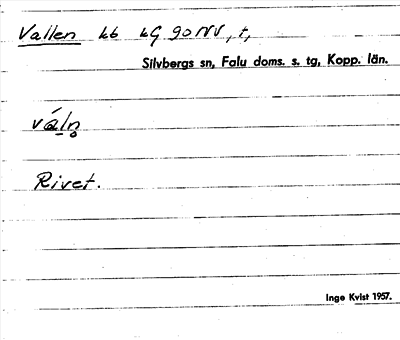 Vallen kb kG 90 NV, t,
Silvbergs sn, Falu doms. s. tg, Kopp. län.
váln̥
Rivet.
Inge Kvist 1957.